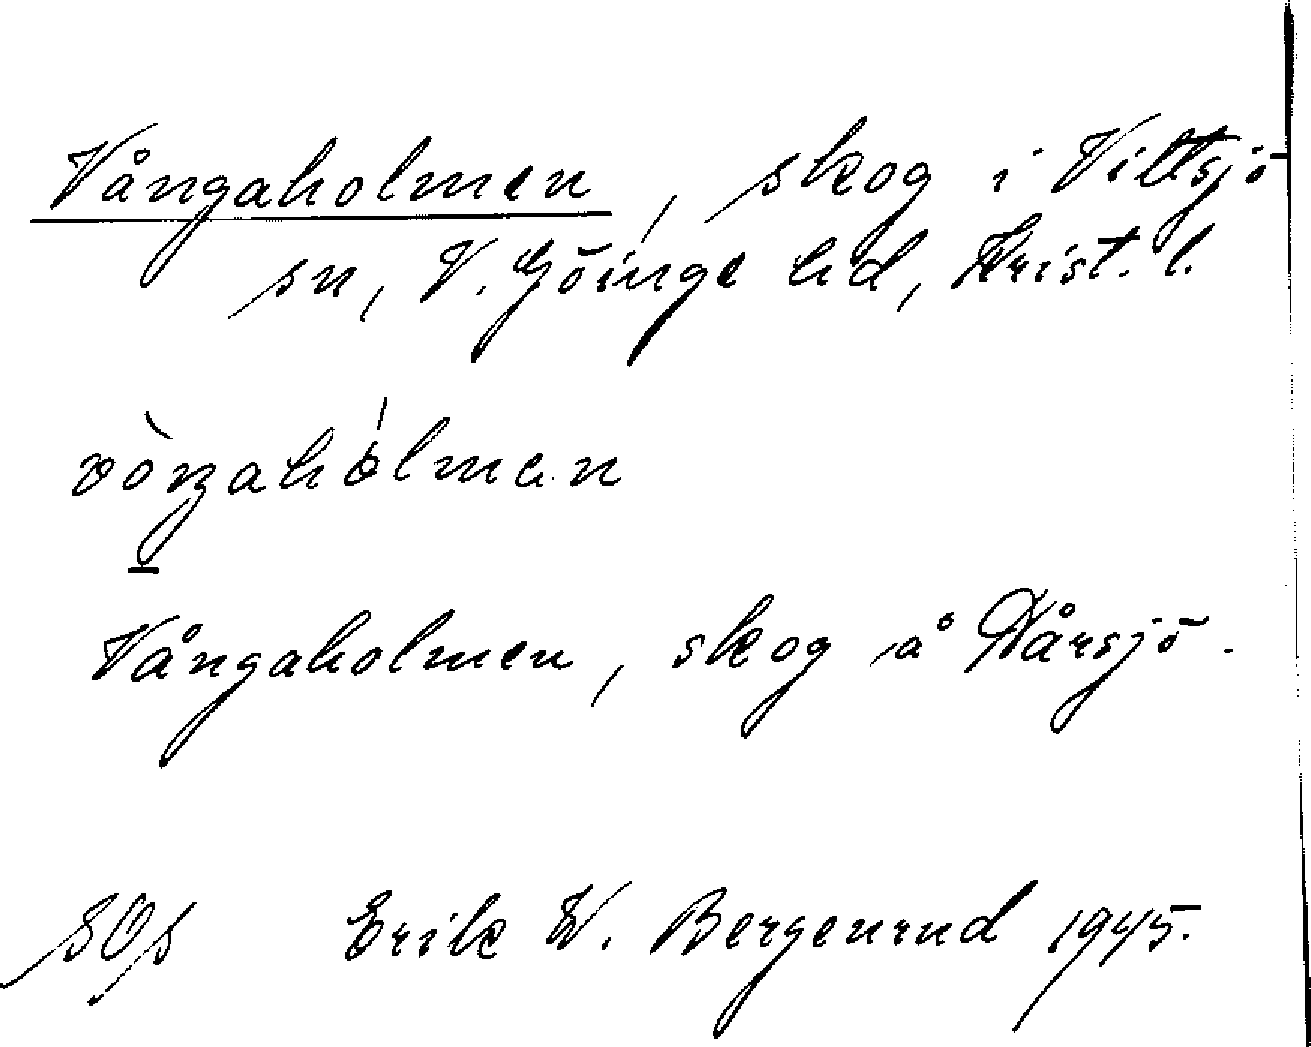 Vångaholmen, skog i Vittsjö
sn, V. Göinge hd, Krist. l.
vòŋahólman
Vångaholmen, skog å Pårsjö.
Erik W. Bergenrud 1945.